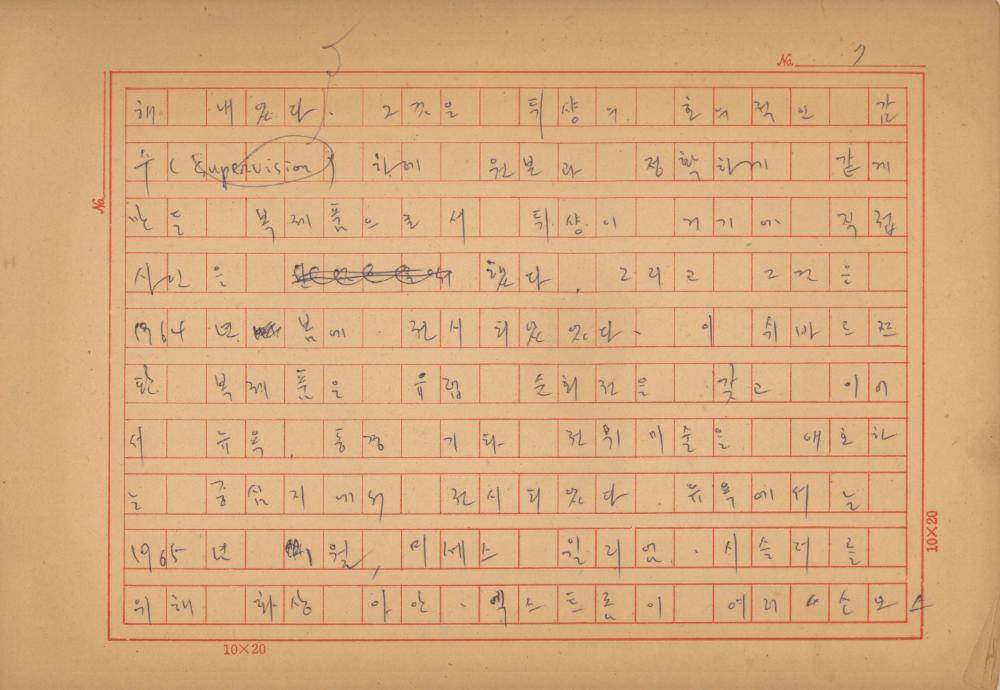 No. 7
해 내었다. 그것을 뒤샹의 호의적인 감
수(supervision) 하에 원본과 정확하게 같게
만든 복제품으로서 뒤샹이 거기에 직접
사인을 했다. 그리고 그것은
1964년 봄에 전시되었었다. 이 쉬바르쯔
판 복제품을 유럽 순회전을 갖고 이어
서 뉴욕, 동경 기타 전위미술을 애호하
는 중심지에서 전시되었다. 뉴욕에서는
1965년 1월, 미세스 윌리엄·시슬러를
위해 화상 아안·엑스트롬이 여러 손모스
No.
10×20
10×20